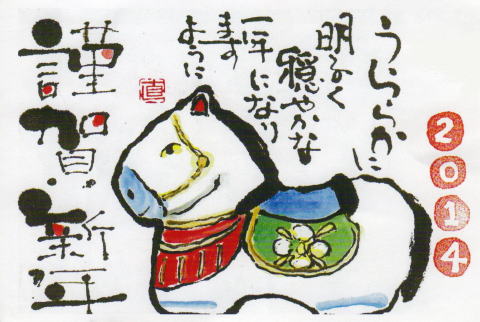 うららかに
明るく
穏やかな
一年になり
ます
ように
謹賀新年
2014